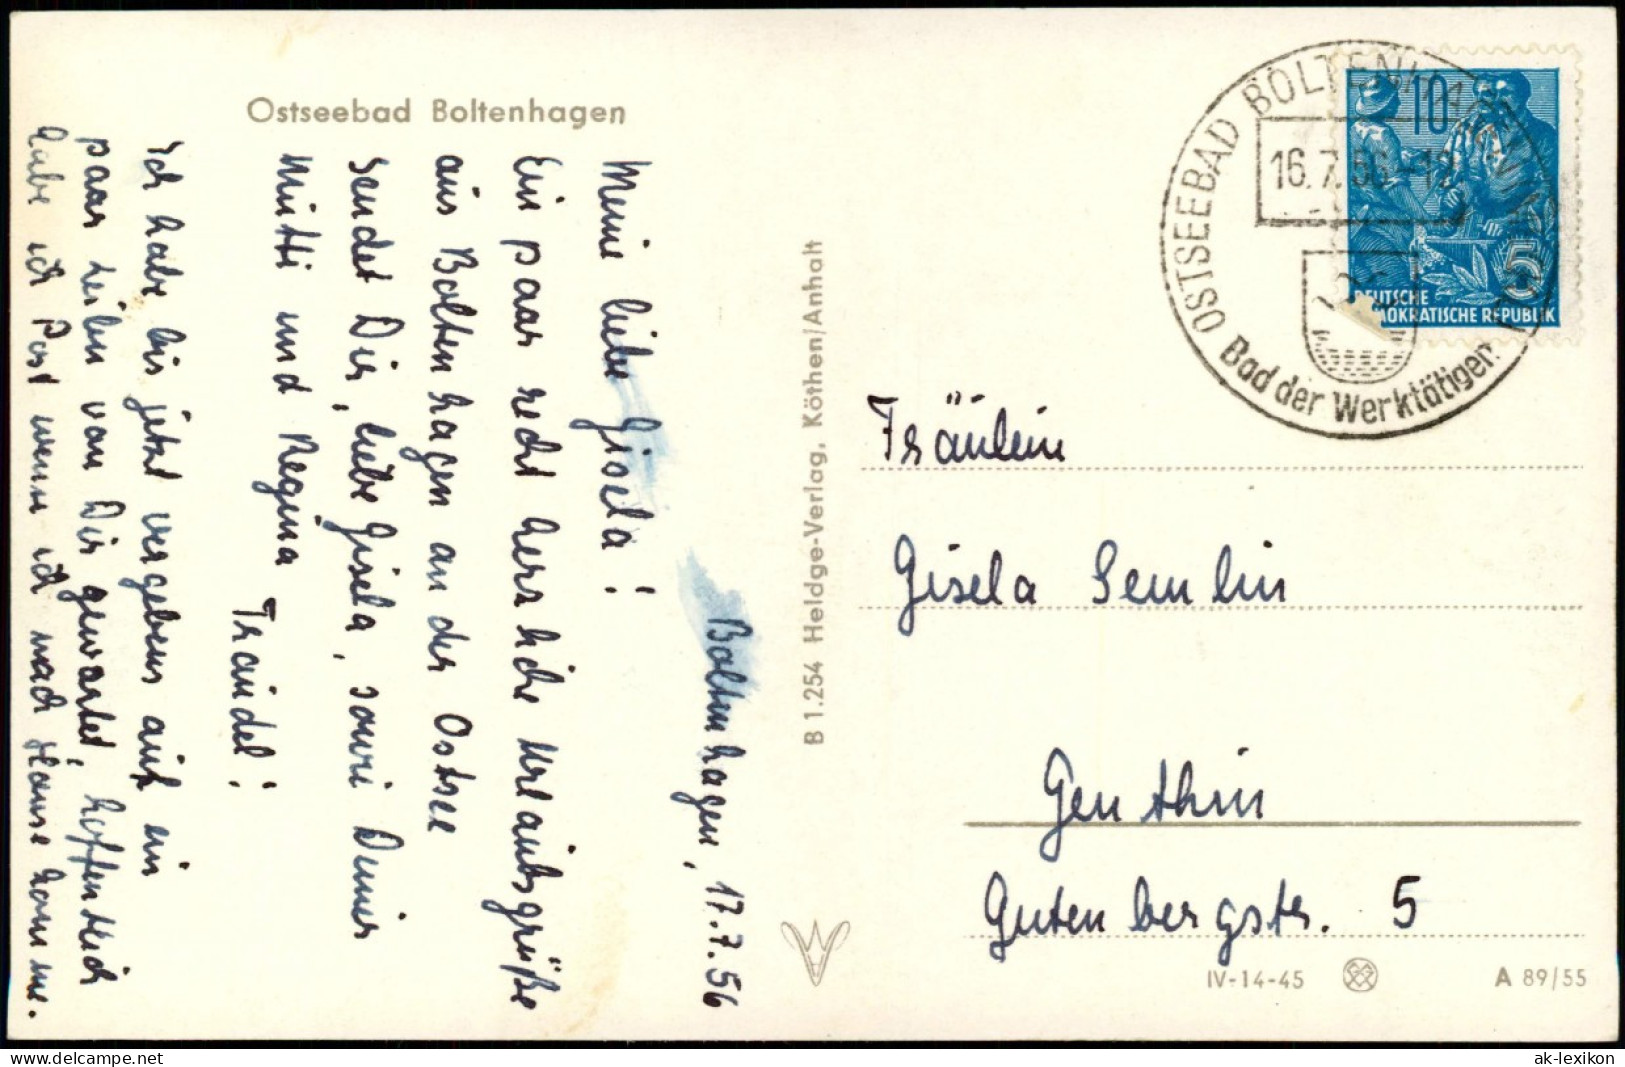 Ostseebad Boltenhagen
Boltenhagen, 17.7.56
Meine liebe Gisela!
Ein paar recht herzliche Urlaubsgrüße
aus Boltenhagen an der Ostsee
sendet Dir, liebe Gisela, sowie Deiner
Mutti und Regina
Traudel!
Ich habe bis jetzt vergebens auf ein
paar Zeilen von Dir gewartet, hoffentlich
habe ich Post wenn ich nach Hause komme.
B 1.254 Heldge-Verlag, Köthen/Anhalt
OSTSEEBAD BOLTENHAGEN
16.7.56-12
Bad der Werktätigen
10
5
DEUTSCHE
DEMOKRATISCHE REPUBLIK
Fräulein
Gisela Semlin
Genthin
Gutenbergstr. 5
IV-14-45
A 89/55
delcampe.net
ak-lexikon